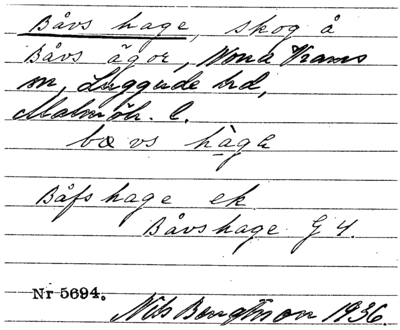 Båvs hage, skog å
Båvs ägor, Norra Vrams
sn, Luggude hd,
Malmöh. l.
bovs hage
Båfs hage ek
Båvshage G 4.
Nr 5694.
Nils Bengtsson 1936.